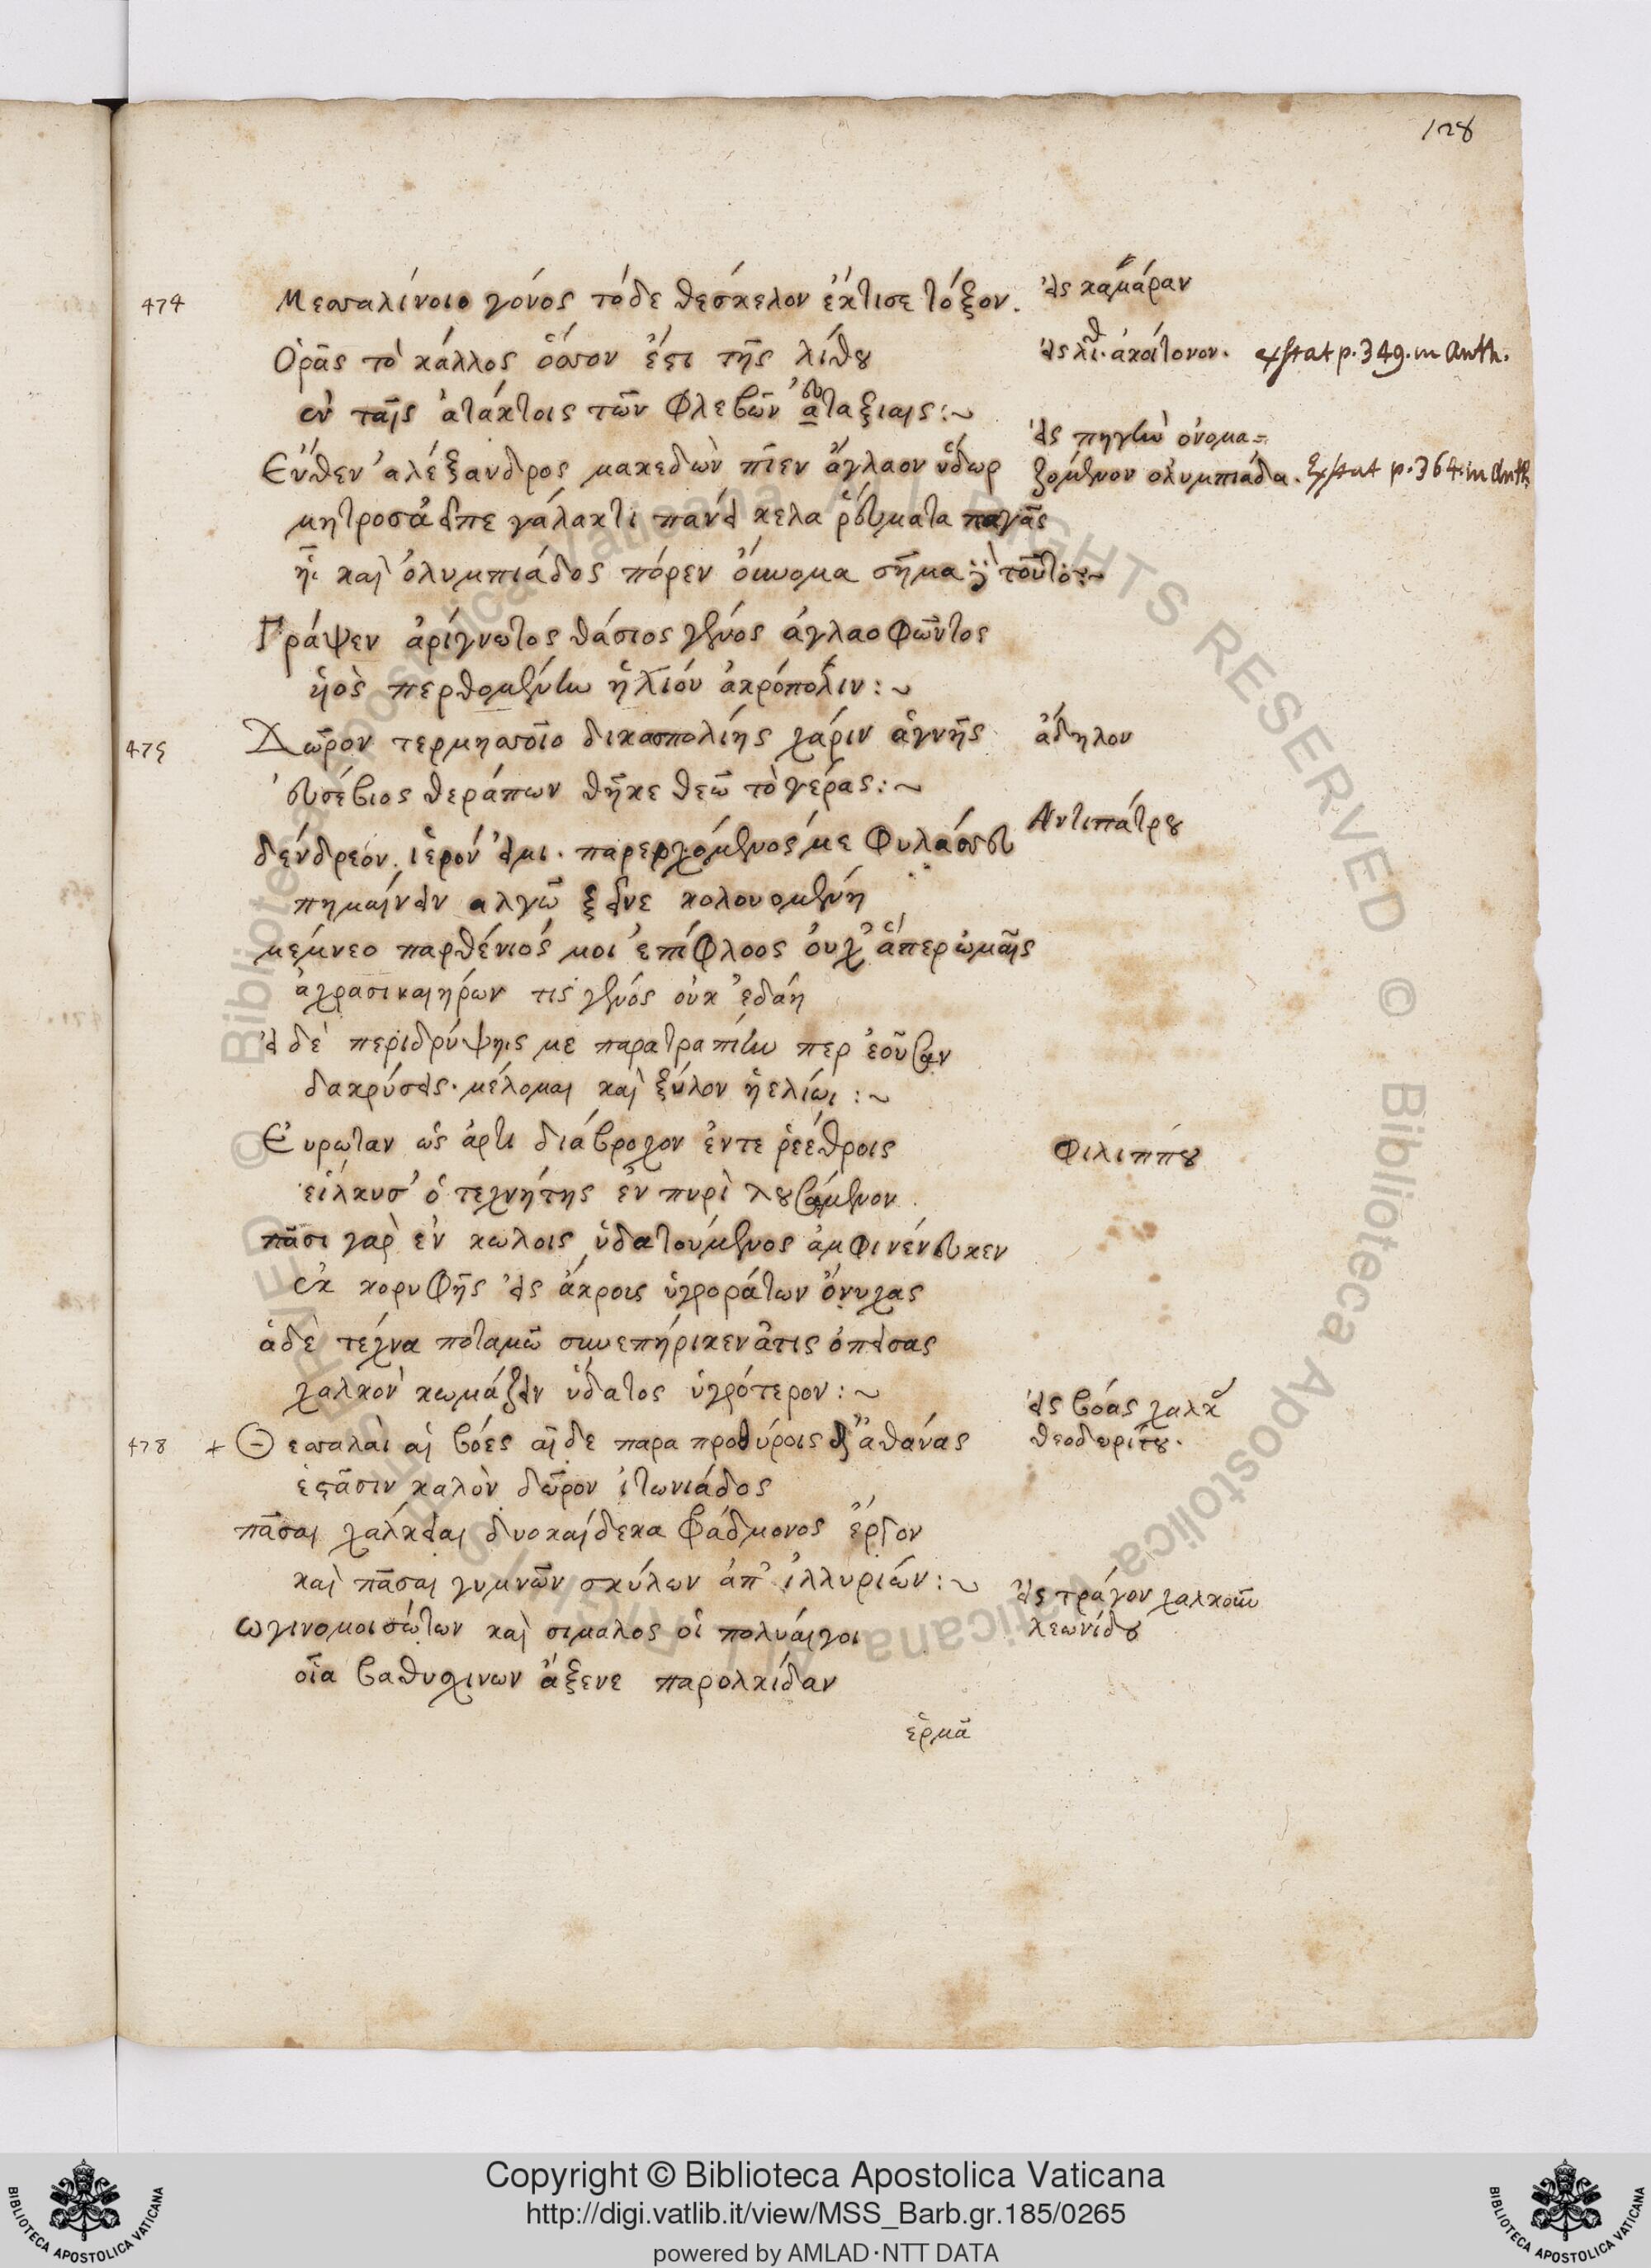 128
474 Μεσσαλίνοιο γόνος τόδε θέσκελον ἔκτισε τόξον. εἰς καμάραν
Ὁρᾶς τὸ κάλλος ὅσσον ἔστι τῆς λίθου εἰς λίθ. ἀκοίτονον. exstat p. 349. in Anth.
ἐν ταῖς ἀτάκτοις τῶν φλεβῶν εὐ ἀταξίαις:~
Ἔνθεν ἀλέξανδρος μακεδὼν πίεν ἄγλαον ὕδωρ εἰς πηγὴν ὀνομα=
ζομένον ὀλυμπιάδα. Exstat p. 364. in Anth
μητροσἀ εἶπε γάλακτι πανείκελα ῥεύματα παγᾶς
ἧι καὶ ὀλυμπιάδος πόρεν οὔνομα σῆμα δὲ τοῦτο:~
Γράψεν ἀρίγνωτος θάσιος γένος ἀγλαοφῶντος
υἱὸς περθομένην ἠλίον ἀκρόπολιν:~
475 Δῶρον τερμησσοῖο δικασπολίης χάριν ἁγνῆς ἄδηλον
εὐσέβιος θεράπων θῆκε θεῶ τὸ γέρας:~
δένδρεόν ἱερόν εἰμι. παρερχόμενός με φυλάσσευ Ἀντιπάτρου
πημαίνειν αλγῶ ξεῖνε κολουομένη
μέμνεο παρθένιός μοι ἐπίφλοος οὐχ ἅπερ ὠμαῖς
ἀχρασι καιήρων τίς γένος οὐκ ἐδάη
εἰ δὲ περιδρύψηις με παρατραπίην περ ἐοῦσαν
δακρύσεις. μέλομαι καὶ ξύλον ἠελίωι:~
Εὐρωταν ὡς ἄρτι διάβροχον ἔντε ῥεέθροις Φιλίππου
εἵλκυσ' ὁ τεχνήτης ἐν πυρὶ λουσάμενον
πᾶσι γαρ ἐν κωλοις ὑδατούμενος ἀμφινένευκεν
ἐκ κορυφῆς εἰς ἄκροις ὑγροράτων ὄνυχας
ἁδὲ τέχνα ποταμῶ συνεπήρικεν ἆτις ὀπείσας
χαλκὸν κωμάζειν ὕδατος ὑγρότερον:~
εἰς βόας χαλκ
478 + Θεσσαλαὶ αἱ βόες αἵδε παρα προθύροις δ ἀθάνας θεοδωρίτου.
ἑστᾶσιν καλὸν δῶρον ἰτωνιάδος
πᾶσαι χαλκειαι δυοκαίδεκα φάδμονος ἔργον
καὶ πᾶσαι γυμνῶν σκύλων ἀπ' ἰλλυριῶν:~ εἰς τράγον χαλκοῦν
ωγινομοι σώτων καὶ σιμαλος οἱ πολυάιγοι λεωνίδου
οἷα βαθυσχινων ἄξενε παρολκίδαν
ἑρμᾶ
Copyright © Biblioteca Apostolica Vaticana
http://digi.vatlib.it/view/MSS_Barb.gr.185/0265
powered by AMLAD·NTT DATA